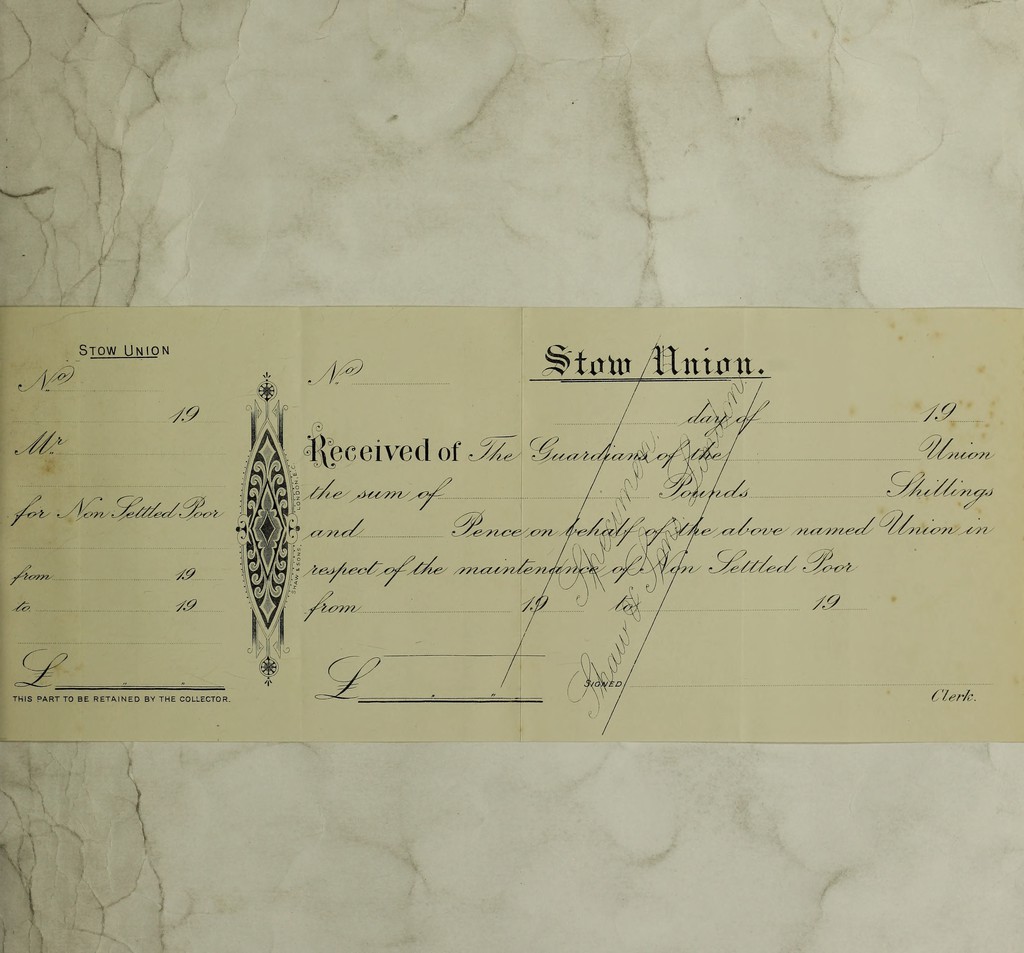 STOW UNION
No
19
Mr
for Non Settled Poor
from 19
to 19
£
THIS PART TO BE RETAINED BY THE COLLECTOR.
SHAW & SONS, LONDON, E.C.
No
Stow Union.
day of 19
Received of The Guardians of the Union
the sum of Pounds Shillings
and Pence on behalf of the above named Union in
respect of the maintenance of Non Settled Poor
from 19 to 19
£
SIGNED
Clerk.
Specimen.
Shaw & Sons, London.